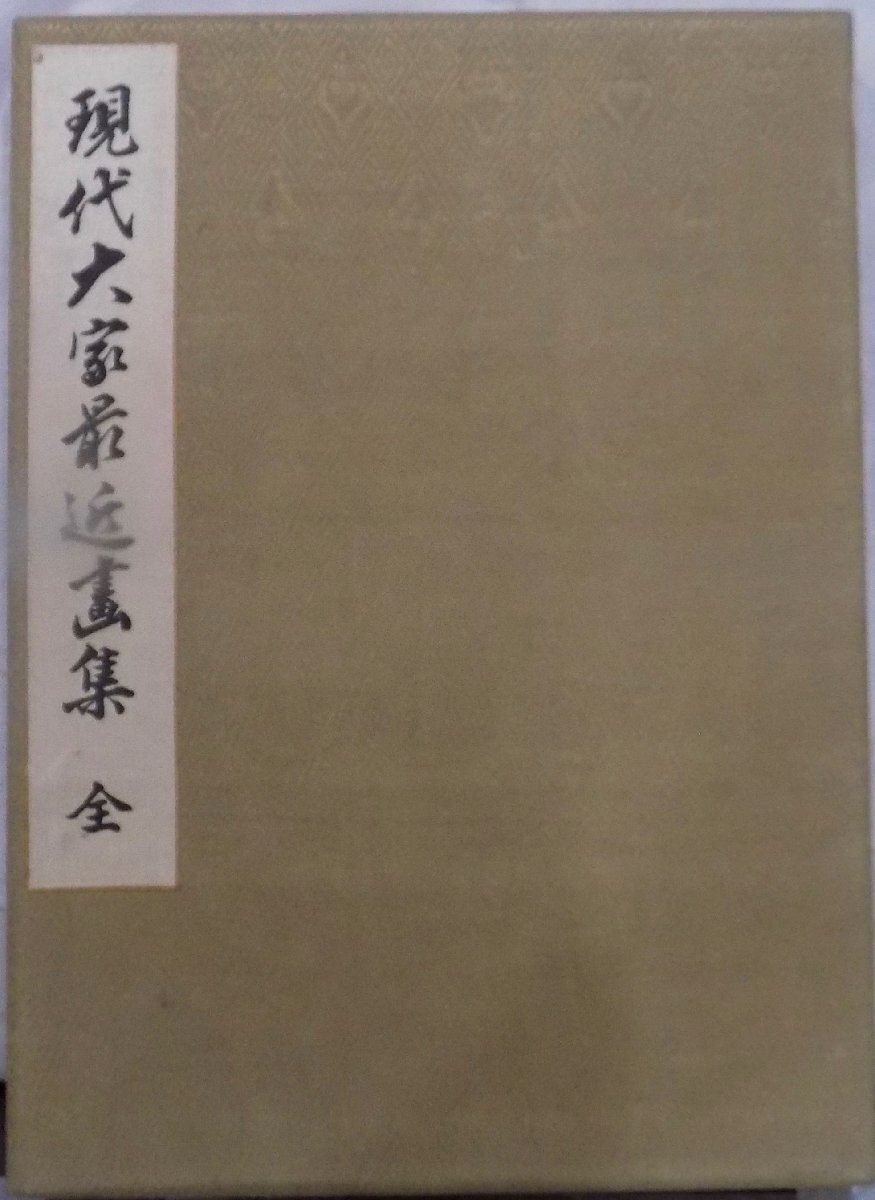 現代大家最近畫集 全